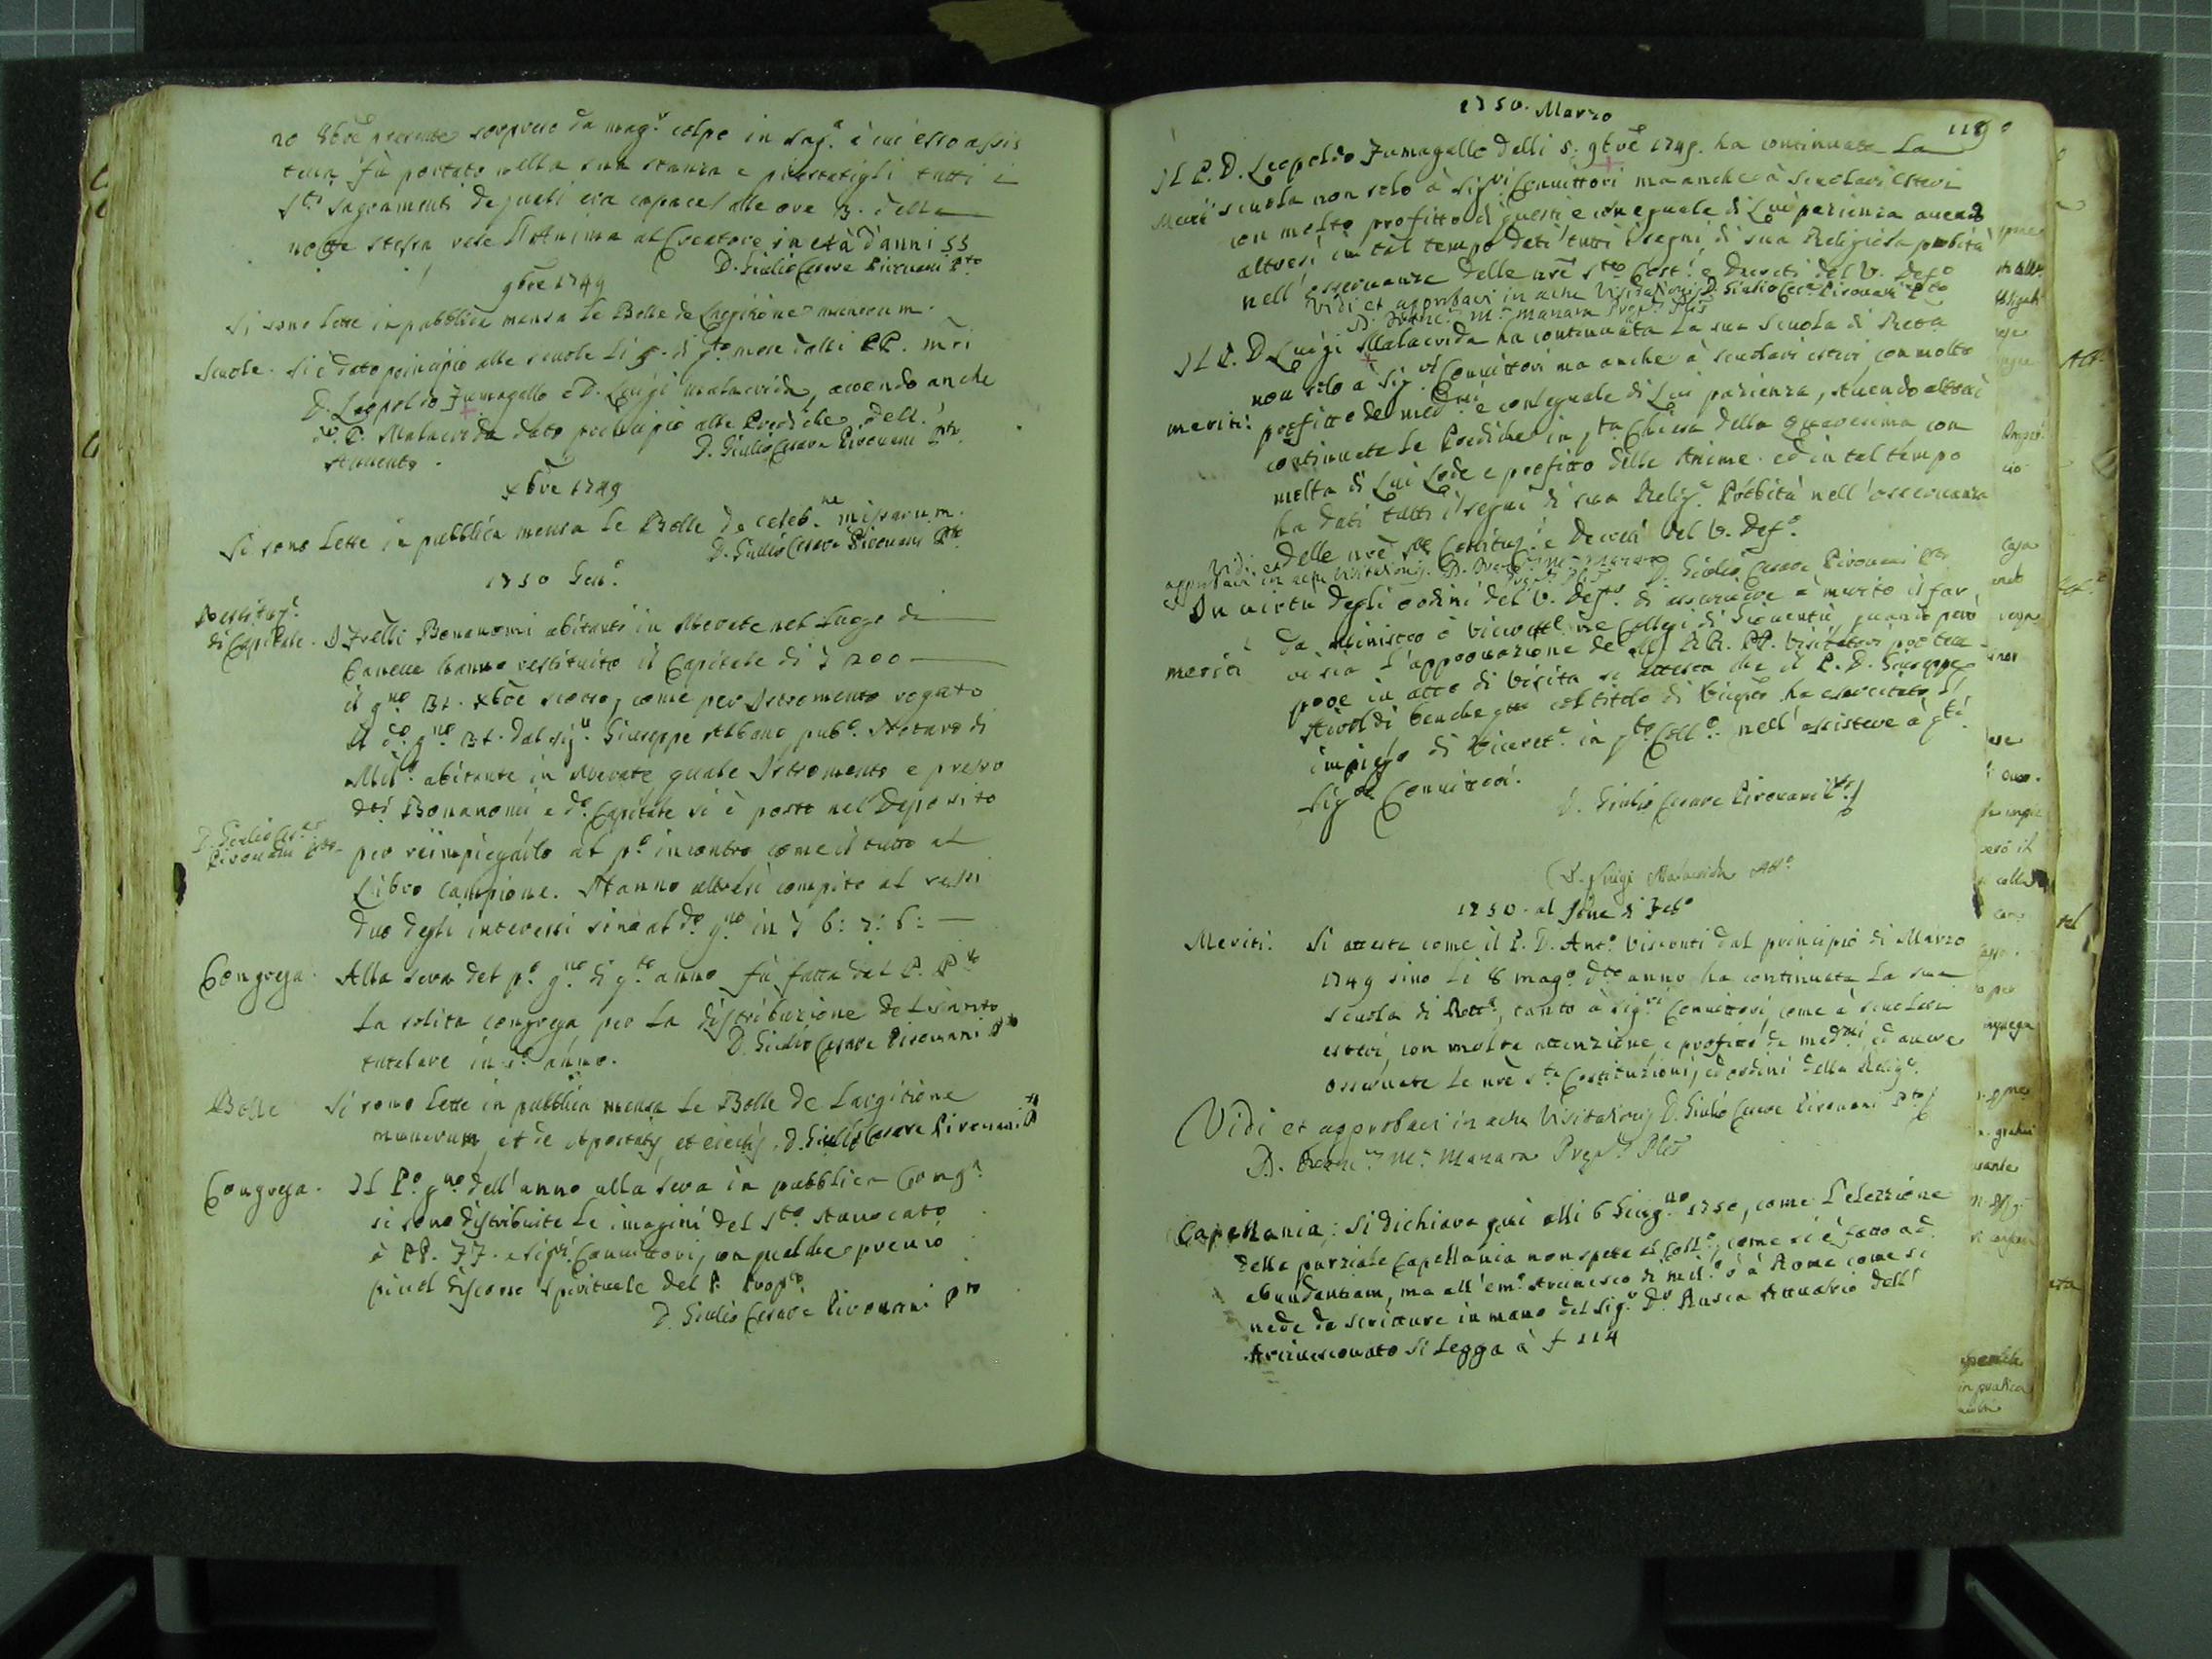 20 8bre presente sorpreso da mag.r colpo in Sag.a à cui esso assis
teva fù portato nella sua stanza e prestatigli tutti i
S.ti Sagramenti de quali era capace alle ore 13. della
notte stessa rese l'Anima al Creatore in età d'anni 55
D. Giulio Cesare Pirovani P.to
9bre 1749
Si sono lette in pubblica mensa le Bolle de Largitione munerum.
Scuole. Si è dato principio alle scuole li 5. di q.to mese dalli PP. Mri
D. Leopoldo Fumagallo e D. Luigi Malacrida, avendo anche
do. P. Malacrida dato principio alle Prediche dell'
Avvento.
D. Giulio Cesare Pirovani P.to
Xbre 1749
Si sono lette in pubblica mensa le Bolle de celeb.ne missarum.
D. Giulio Cesare Pirovani P.to
1750 Gen.o
Restituz.e
di Capitale. I Frelli Bonanomi abitanti in Merate nel luogo di
hanno restituito il Capitale di 200
il g.no 31. Xbre scorso, come per Istromento rogato
il do. g.no 31. dal Sig.r Giuseppe Albano pub.o Notaro di
Mil.o abitante in Merate quale Istromento e presso
dti Bonanomi e do. Capitale si è posto nel Deposito
D. Giulio Ces.re
Pirovani P.to
per reimpiegarlo al p.o incontro come il tutto al
Libro Campione. Hanno altresì compito al resi
duo degli interessi sino al do. g.no in 6: 7: 6:
Congrega. Alla sera del p.o g.no di q.to anno fù fatta dal P. P.to
la solita congrega per la distribuzione del santo
tutelare in do. anno.
D. Giulio Cesare Pirovani P.to
Bolle Si sono lette in pubblica mensa le Bolle de Largitione
munerum, et de Apostatis, et eiectis. D. Giulio Cesare Pirovani P.to
Congrega. Il P.o g.no dell'anno alla sera in pubblica Cong.a
si sono distribuite le imagini del S.to Avvocato
à PP. FF. e Sig.ri Convittori, con qualche previo
pio discorso spirituale del P. Prop.to
D. Giulio Cesare Pirovani P.to
1750. Marzo
118
Il P. D. Leopoldo Fumagallo delli 5. 9bre 1749. ha continuata la
Meriti scuola non solo à Sig.ri Convittori ma anche à scuolari esteri
con molto profitto di questi e con eguale di Lui pazienza avendo
altresì in tal tempo dati tutti i segni di sua Religiosa probità
nell'osservanza delle nre S.te Cost.i e Decreti del V. Def.o
Vidi et approbavi in actu Visitationis D. Giulio Ces.e Pirovani P.to
D. Franc.s M.a Manara Prep.s Plis
Il P. D. Luigi Malacrida ha continuata la sua Scuola di Retta
non solo à Sig.ri Convittori ma anche à scuolari esteri con molto
meriti: profitto de med.mi e con eguale di Lui pazienza, avendo altresì
continuate le Prediche in q.ta Chiesa della Quaresima con
molta di Lui Lode e profitto delle Anime. ed in tal tempo
ha dati tutti i segni di sua Relig.a Probità nell'osservanza
delle nre S.te Constituz.i e Decreti del V. Def.o
Vidi et
approbavi in actu Visitationis. D. Franc.s M.a Manara
Prep.s Plis D. Giulio Cesare Pirovani P.to
In virtù degli ordini del V. Def.o di ascrivere a merito il far
da Ministro ò Vicerett.e ne Collegi di Gioventù, quando però
meriti vi sia l'approvazione de RR. PP. Visitatori
in atto di Visita si attesta che il P. D. Giuseppe
Airoldi benche col titolo di ha esercitato l'
impiego di Vicerett.e in q.to Coll.o nell'assistere à q.ti
Sig.ri Convittori.
D. Giulio Cesare Pirovani P.to
D. Luigi Malacrida Att.o
1750. al fine di Feb.o
Meriti: Si attesta come il P. D. Ant.o Visconti dal principio di Marzo
1749 sino li 8 mag.o dto anno ha continuata la sua
scuola di Rett.a, tanto à Sig.ri Convittori, come à scuolari
esteri, con molta attenzione, e profitto de med.mi, ed avere
osservate le nre S.te Costituzioni, ed ordini della Relig.e
Vidi et approbavi in actu Visitationis D. Giulio Cesare Pirovani P.to
D. Franc.s M.a Manara Prep.s Plis
Capellania: Si dichiara qui alli 6 Giug.no 1750, come l'elezzione
della porziale Capellania non spetta al Coll.o, come si è fatto ad
abundantiam, ma all'em.o Arcivesco di Mil.o ò à Roma come si
vede da scritture in mano del Sig.r D.r Rusca Attuario dell'
Arcivescovato si legga à f 114